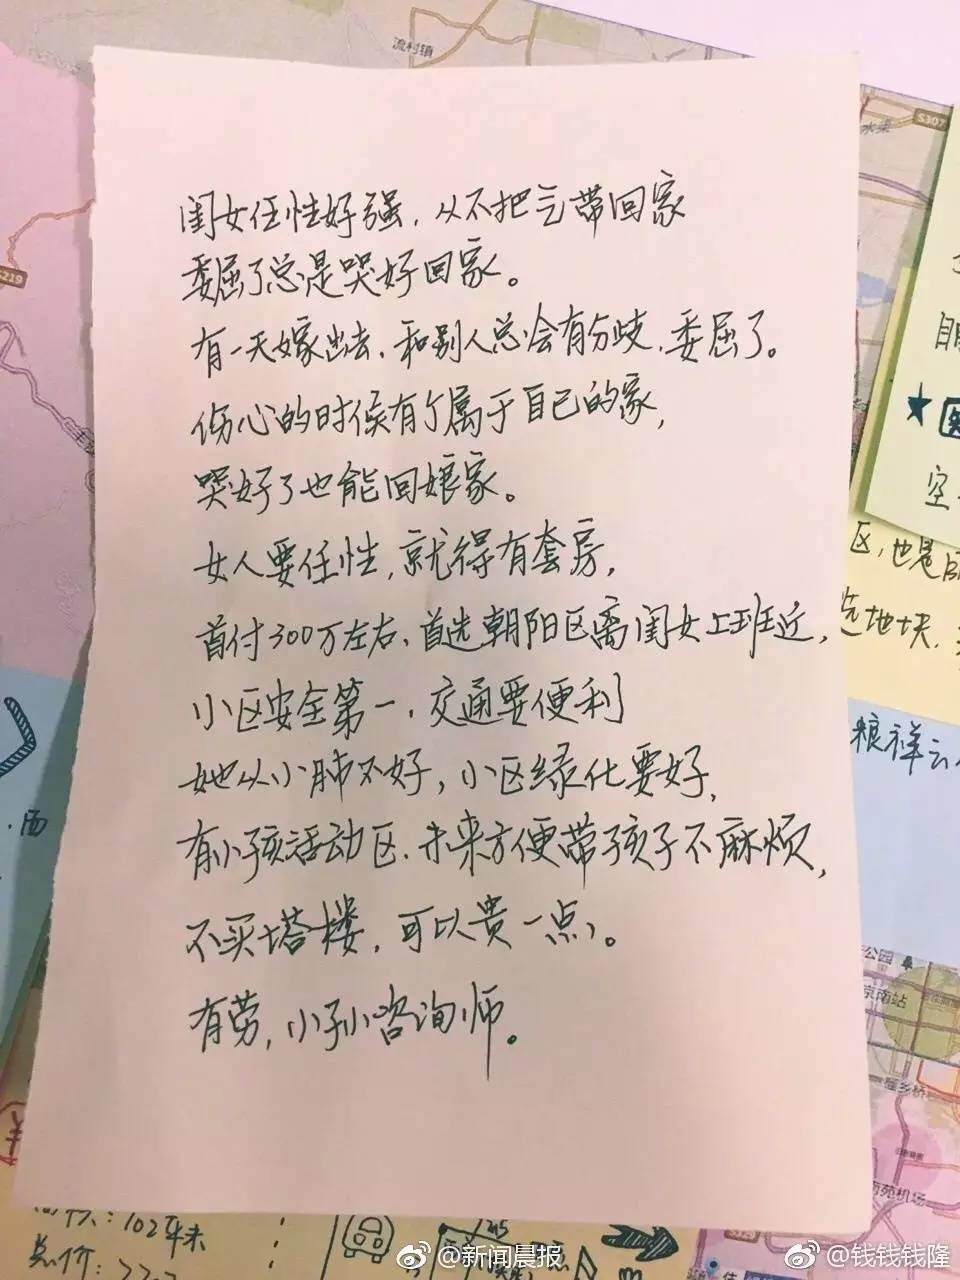 流村镇
S307
水渠
S219
闺女任性好强，从不把气带回家
委屈了总是哭好回家。
有一天嫁出去，和别人总会有分歧，委屈了。
伤心的时候有个属于自己的家，
哭好了也能回娘家。
女人要任性，就得有套房，
首付300万左右、首选朝阳区离闺女上班近，
小区安全第一，交通要便利
她从小肺不好，小区绿化要好，
有小孩活动区、未来方便带孩子不麻烦，
不买塔楼，可以贵一点。
有劳，小孙咨询师。
空
区，也是
选地块，
粮祥云
西
公园
京南站
南苑机场
：102平米
总价：
@新闻晨报
@钱钱钱隆